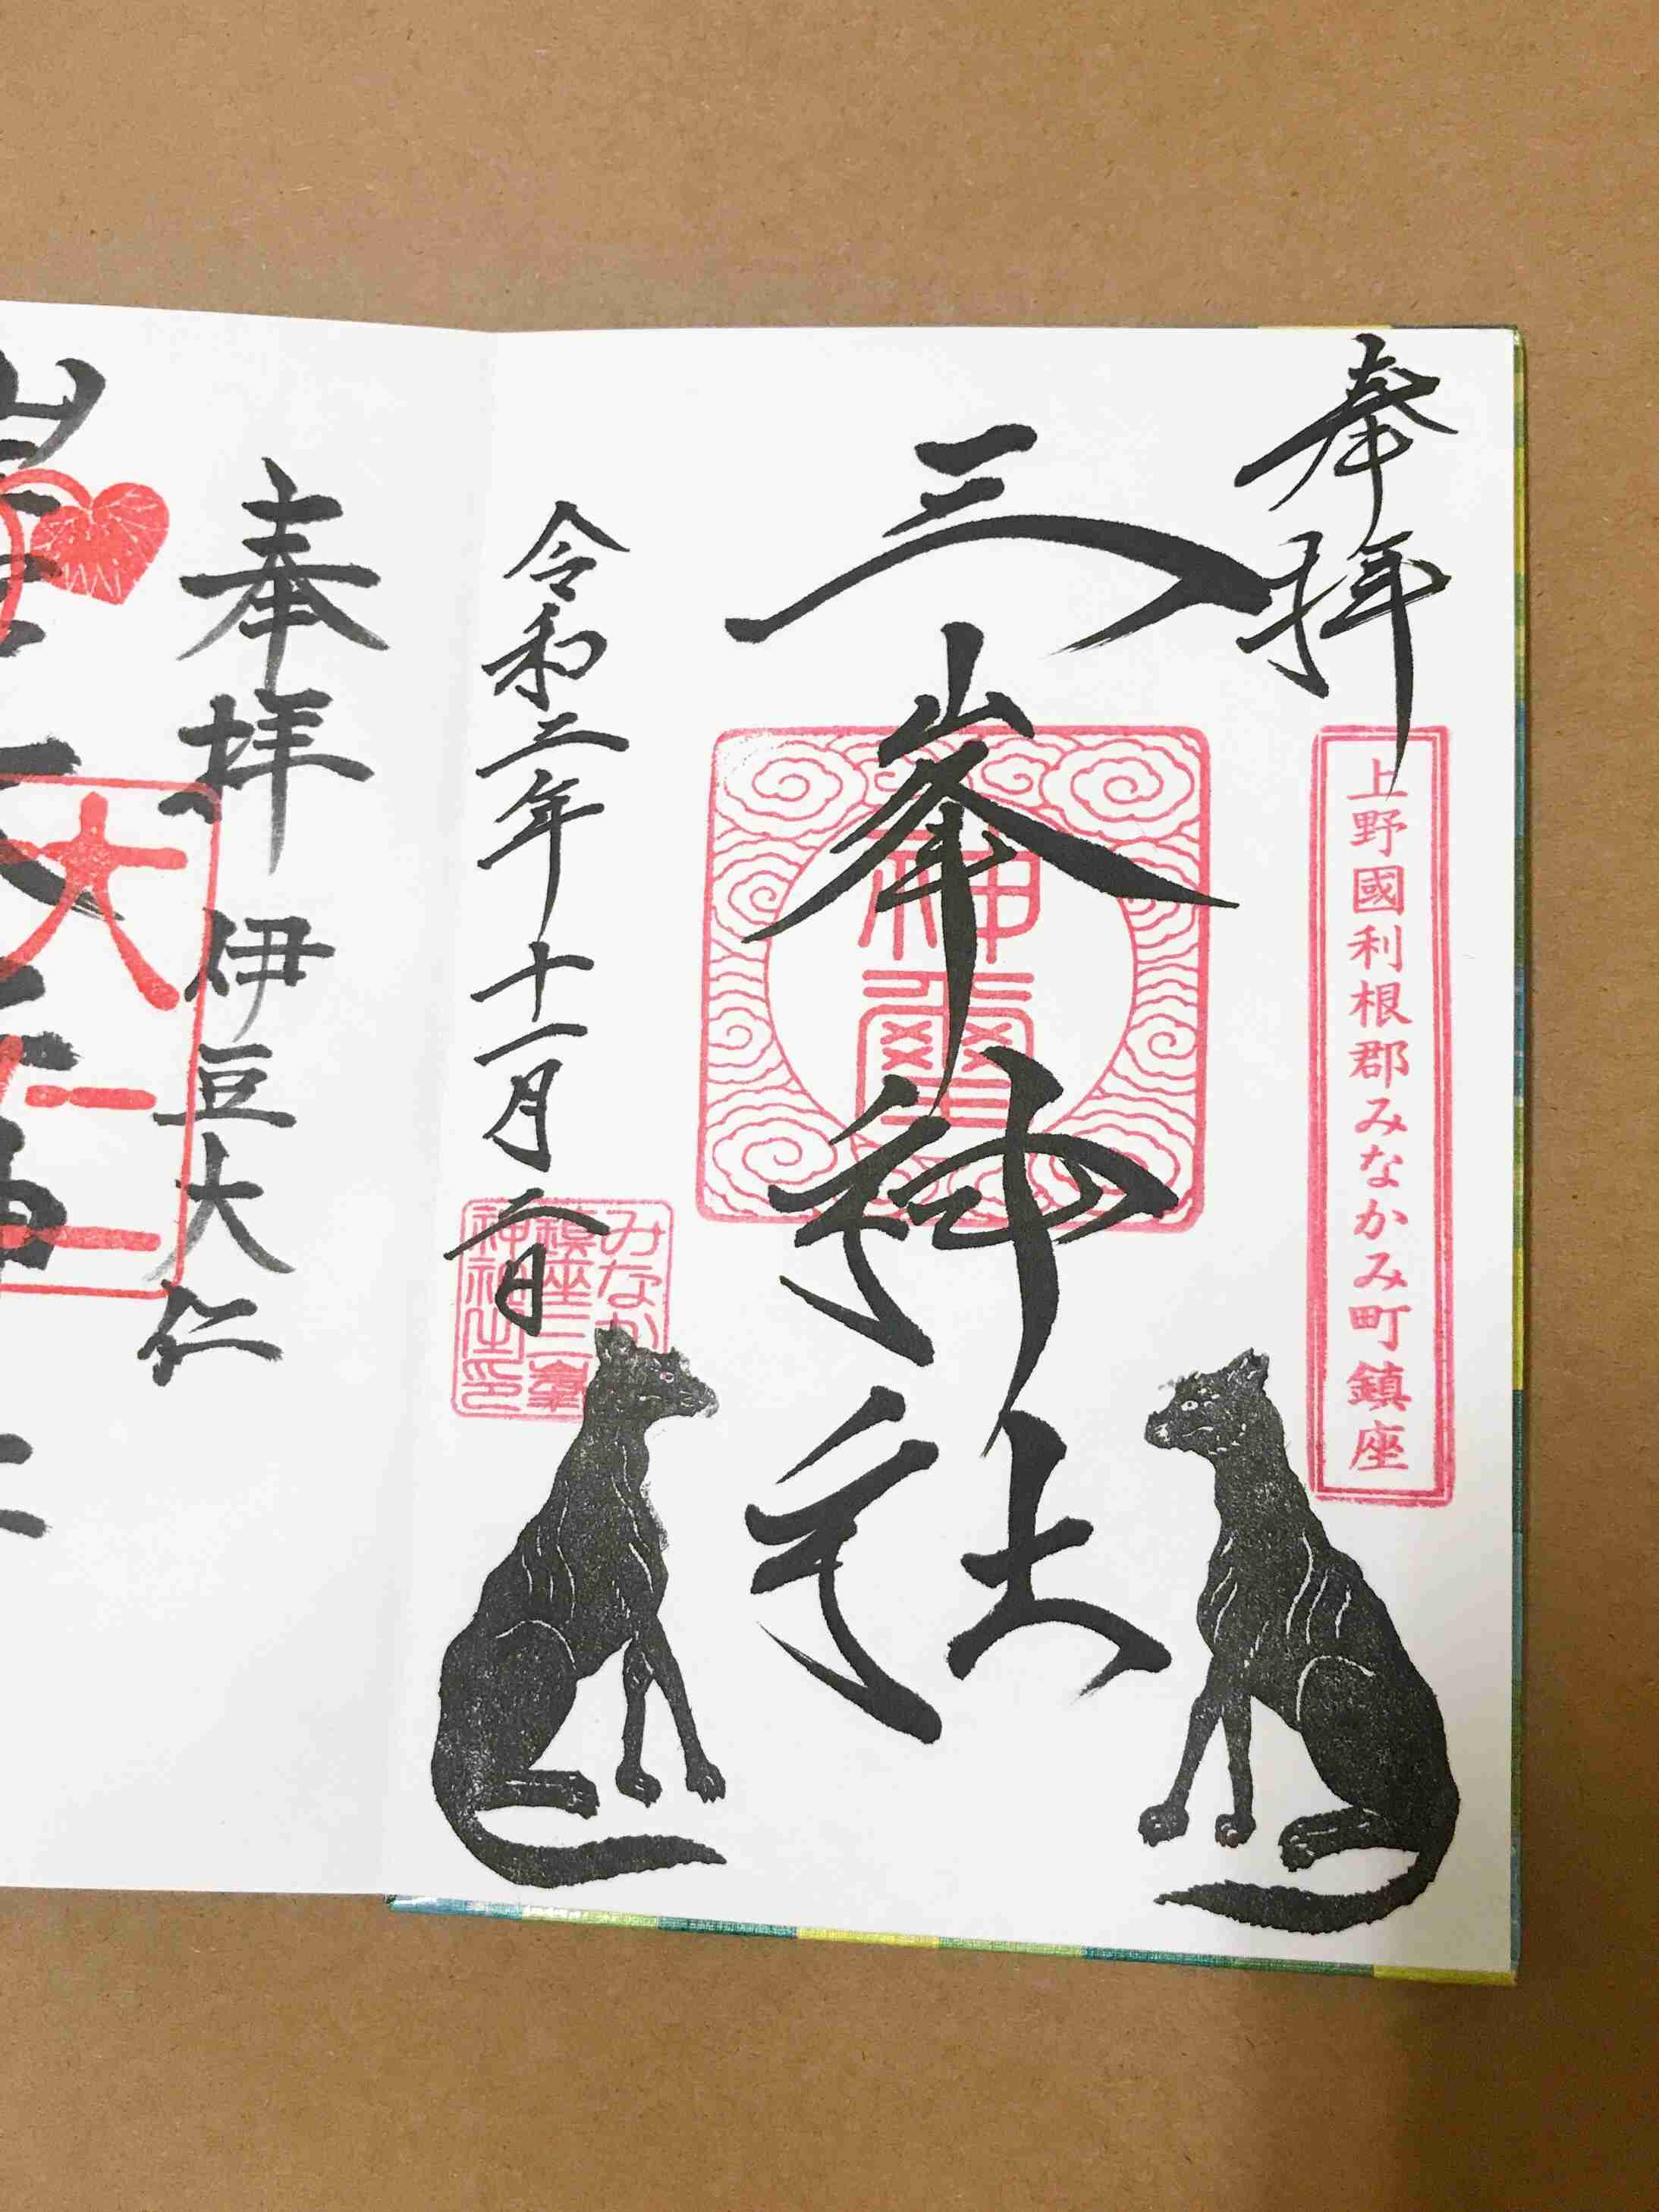 奉拝
上野國利根郡みなかみ町鎮座
三峯神社
神璽
令和三年十一月二日
みなか
鎮座三峯
神社之印
奉拝
伊豆大仁
大
仁